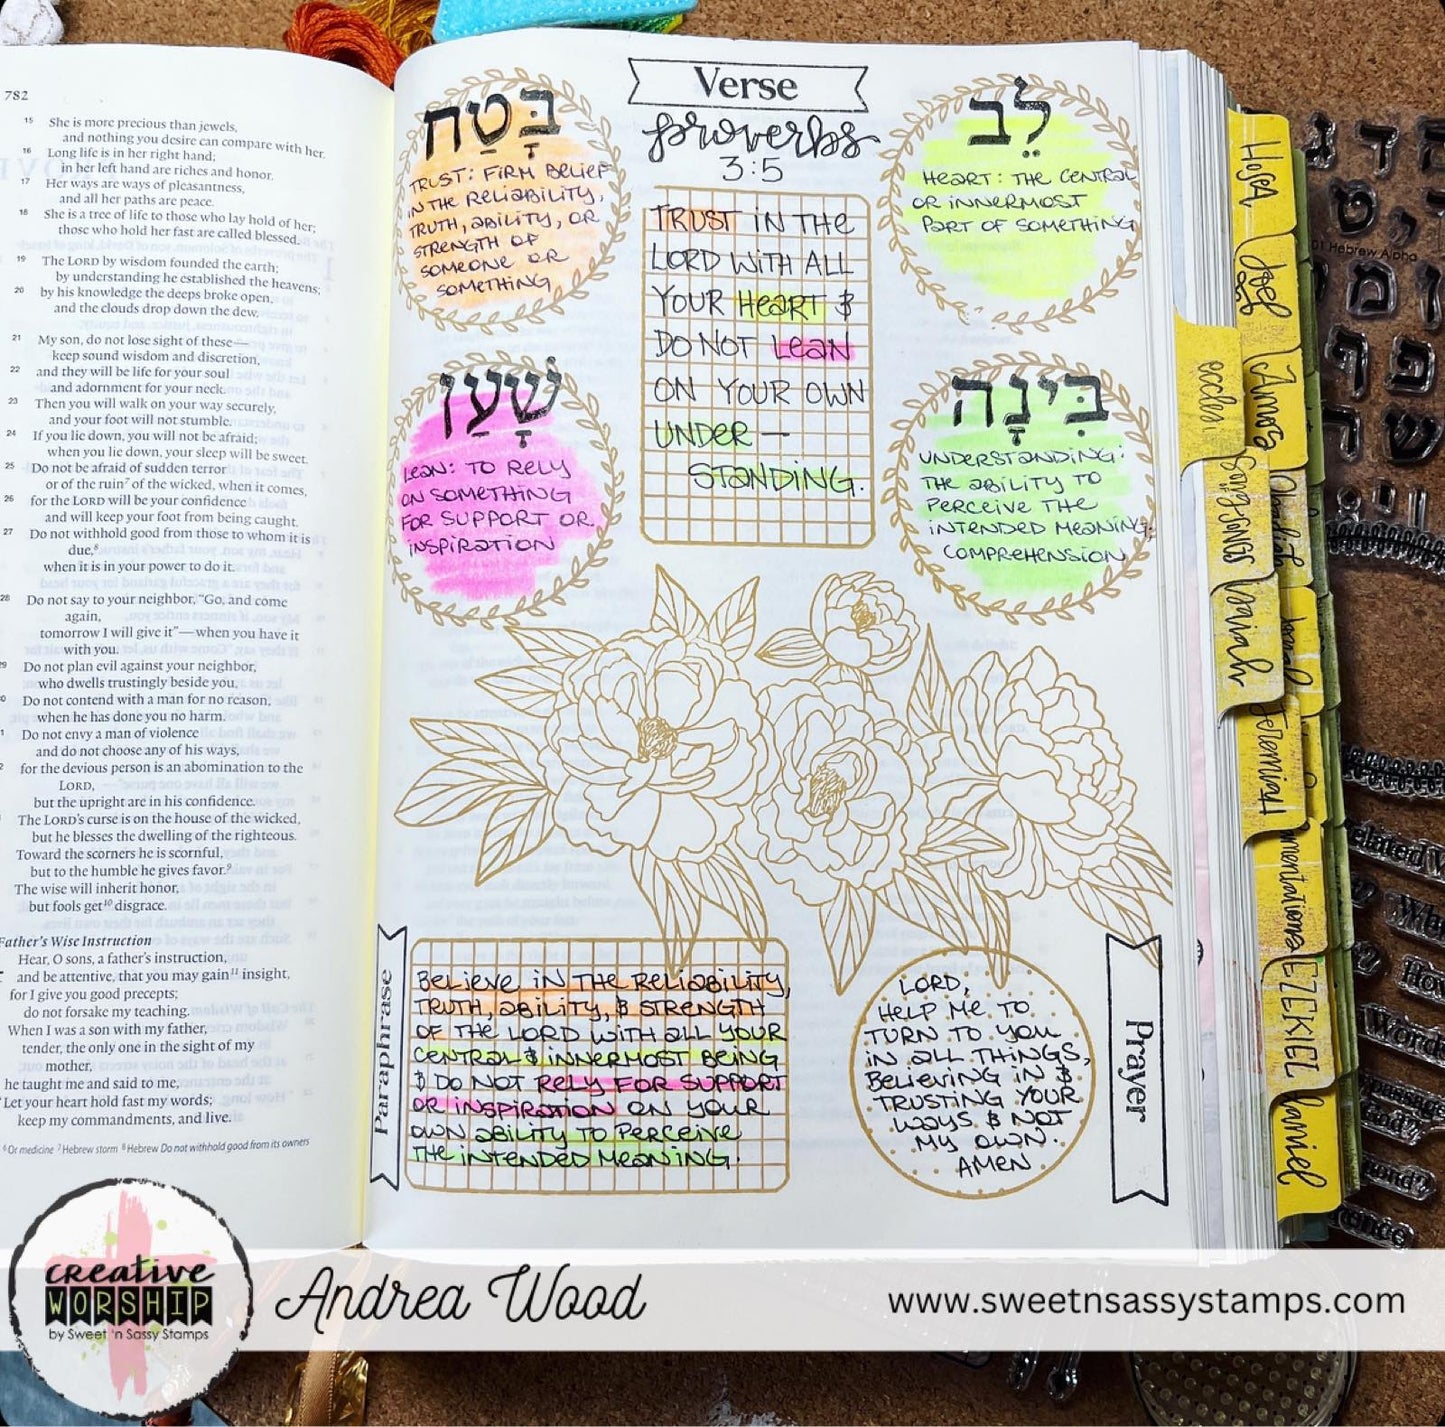 782
15 She is more precious than jewels,
and nothing you desire can compare with her.
16 Long life is in her right hand;
in her left hand are riches and honor.
17 Her ways are ways of pleasantness,
and all her paths are peace.
18 She is a tree of life to those who lay hold of her;
those who hold her fast are called blessed.
19 The LORD by wisdom founded the earth;
by understanding he established the heavens;
20 by his knowledge the deeps broke open,
and the clouds drop down the dew.
21 My son, do not lose sight of these—
keep sound wisdom and discretion,
22 and they will be life for your soul
and adornment for your neck.
23 Then you will walk on your way securely,
and your foot will not stumble.
24 If you lie down, you will not be afraid;
when you lie down, your sleep will be sweet.
25 Do not be afraid of sudden terror
or of the ruin7 of the wicked, when it comes,
26 for the LORD will be your confidence
and will keep your foot from being caught.
27 Do not withhold good from those to whom it is
due,8
when it is in your power to do it.
28 Do not say to your neighbor, “Go, and come
again,
tomorrow I will give it”—when you have it
with you.
29 Do not plan evil against your neighbor,
who dwells trustingly beside you.
0 Do not contend with a man for no reason,
when he has done you no harm.
1 Do not envy a man of violence
and do not choose any of his ways,
2 for the devious person is an abomination to the
LORD,
but the upright are in his confidence.
The LORD's curse is on the house of the wicked,
but he blesses the dwelling of the righteous.
Toward the scorners he is scornful,
but to the humble he gives favor.9
The wise will inherit honor,
but fools get10 disgrace.
Father's Wise Instruction
Hear, O sons, a father's instruction,
and be attentive, that you may gain11 insight,
for I give you good precepts;
do not forsake my teaching.
When I was a son with my father,
tender, the only one in the sight of my
mother,
he taught me and said to me,
Let your heart hold fast my words;
keep my commandments, and live.
6 Or medicine 7 Hebrew storm 8 Hebrew Do not withhold good from its owners
בָּטַח
TRUST: FIRM BELIEF
IN THE RELIABILITY,
TRUTH, ABILITY, OR
STRENGTH OF
SOMEONE OR
SOMETHING
שָׁעַן
LEAN: TO RELY
ON SOMETHING
FOR SUPPORT OR
INSPIRATION
Verse
proverbs
3:5
TRUST IN THE
LORD WITH ALL
YOUR HEART &
DO NOT LEAN
ON YOUR OWN
UNDER —
STANDING.
לֵב
HEART: THE CENTRAL
OR INNERMOST
PART OF SOMETHING
בִּינָה
UNDERSTANDING:
THE ABILITY TO
PERCEIVE THE
INTENDED MEANING;
COMPREHENSION
Paraphrase
BELIEVE IN THE RELIABILITY,
TRUTH, ABILITY, & STRENGTH
OF THE LORD WITH ALL YOUR
CENTRAL & INNERMOST BEING
& DO NOT RELY FOR SUPPORT
OR INSPIRATION ON YOUR
OWN ABILITY TO PERCEIVE
THE INTENDED MEANING.
LORD,
HELP ME TO
TURN TO YOU
IN ALL THINGS,
BELIEVING IN &
TRUSTING YOUR
WAYS & NOT
MY OWN.
AMEN
Prayer
Hosea
Joel
Amos
Obadiah
eccles
Song of Songs
Isaiah
Jeremiah
Lamentations
EZEKIEL
Daniel
Hebrew Alpha
creative
WORSHIP
by Sweet 'n Sassy Stamps
Andrea Wood
www.sweetnsassystamps.com